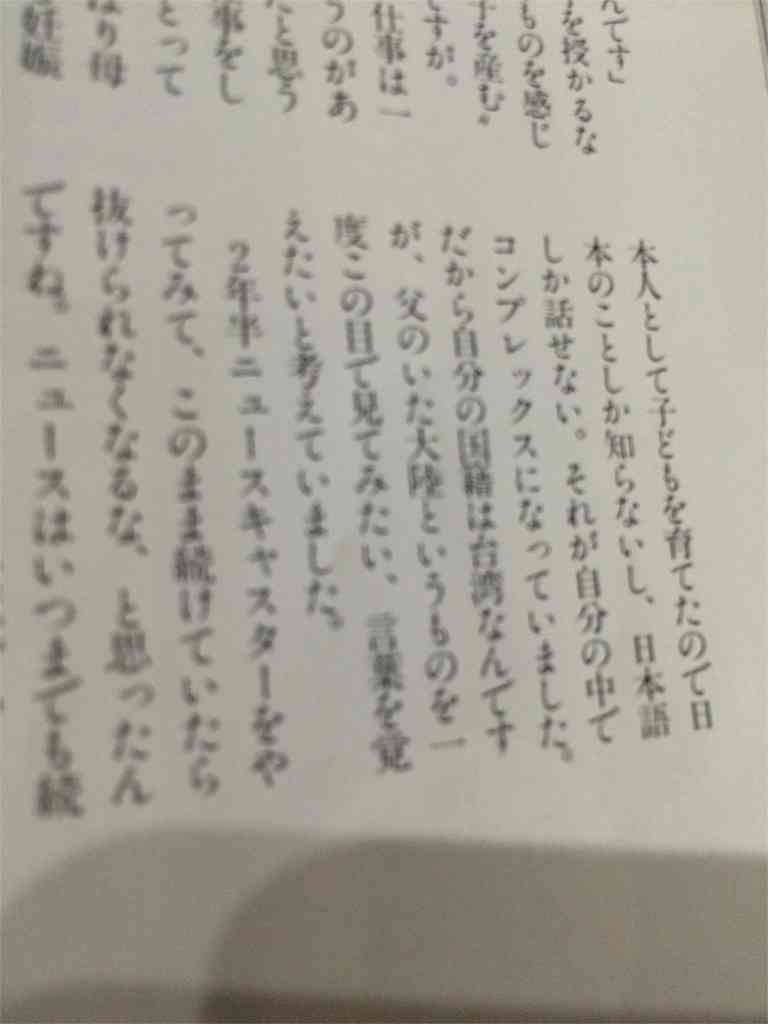 んです」
を授かるな
ものを感じ
子を産む〟
すが。
仕事は一
うのがあ
たと思う
事をし
とって
はり母
妊娠
本人として子どもを育てたので日
本のことしか知らないし、日本語
しか話せない。それが自分の中で
コンプレックスになっていました。
だから自分の国籍は台湾なんです
が、父のいた大陸というものを一
度この目で見てみたい、言葉を覚
えたいと考えていました。
2年半ニュースキャスターをや
ってみて、このまま続けていたら
抜けられなくなるな、と思ったん
ですね。ニュースはいつまでも続